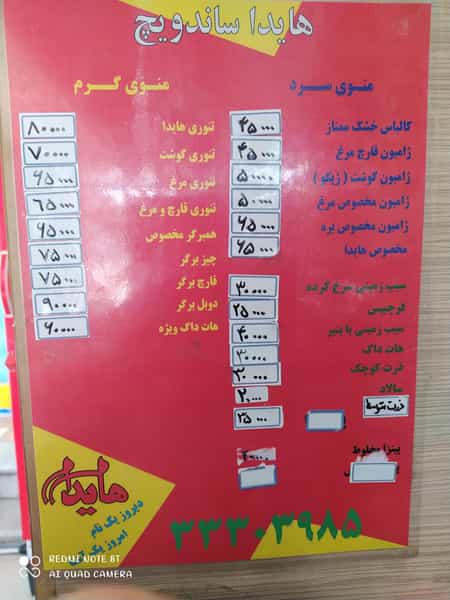 هایدا ساندویچ
منوی سرد
کالباس خشک ممتاز ۴۵۰۰۰
ژامبون قارچ مرغ ۴۵۰۰۰
ژامبون گوشت ( ژیگو ) ۵۰۰۰۰
ژامبون مخصوص مرغ ۵۰۰۰۰
ژامبون مخصوص بره ۶۵۰۰۰
مخصوص هایدا ۶۵۰۰۰
سیب زمینی سرخ کرده ۳۰۰۰۰
قرچیپس ۲۵۰۰۰
سیب زمینی با پنیر ۴۰۰۰۰
هات داگ ۳۰۰۰۰
ذرت کوچک ۲۰۰۰۰
سالاد ۲۰۰۰
ذرت متوسط ۲۵۰۰۰
پیتزا مخلوط
منوی گرم
تنوری هایدا ۸۰۰۰۰
تنوری گوشت ۷۰۰۰۰
تنوری مرغ ۶۵۰۰۰
تنوری قارچ و مرغ ۶۵۰۰۰
همبرگر مخصوص ۶۵۰۰۰
چیز برگر ۷۵۰۰۰
قارچ برگر ۷۵۰۰۰
دوبل برگر ۹۰۰۰۰
هات داگ ویژه ۶۰۰۰۰
هایدا
دیروز یک نام
امروز یک
۳۳۳۰۳۹۸۵
REDMI NOTE 8T
AI QUAD CAMERA